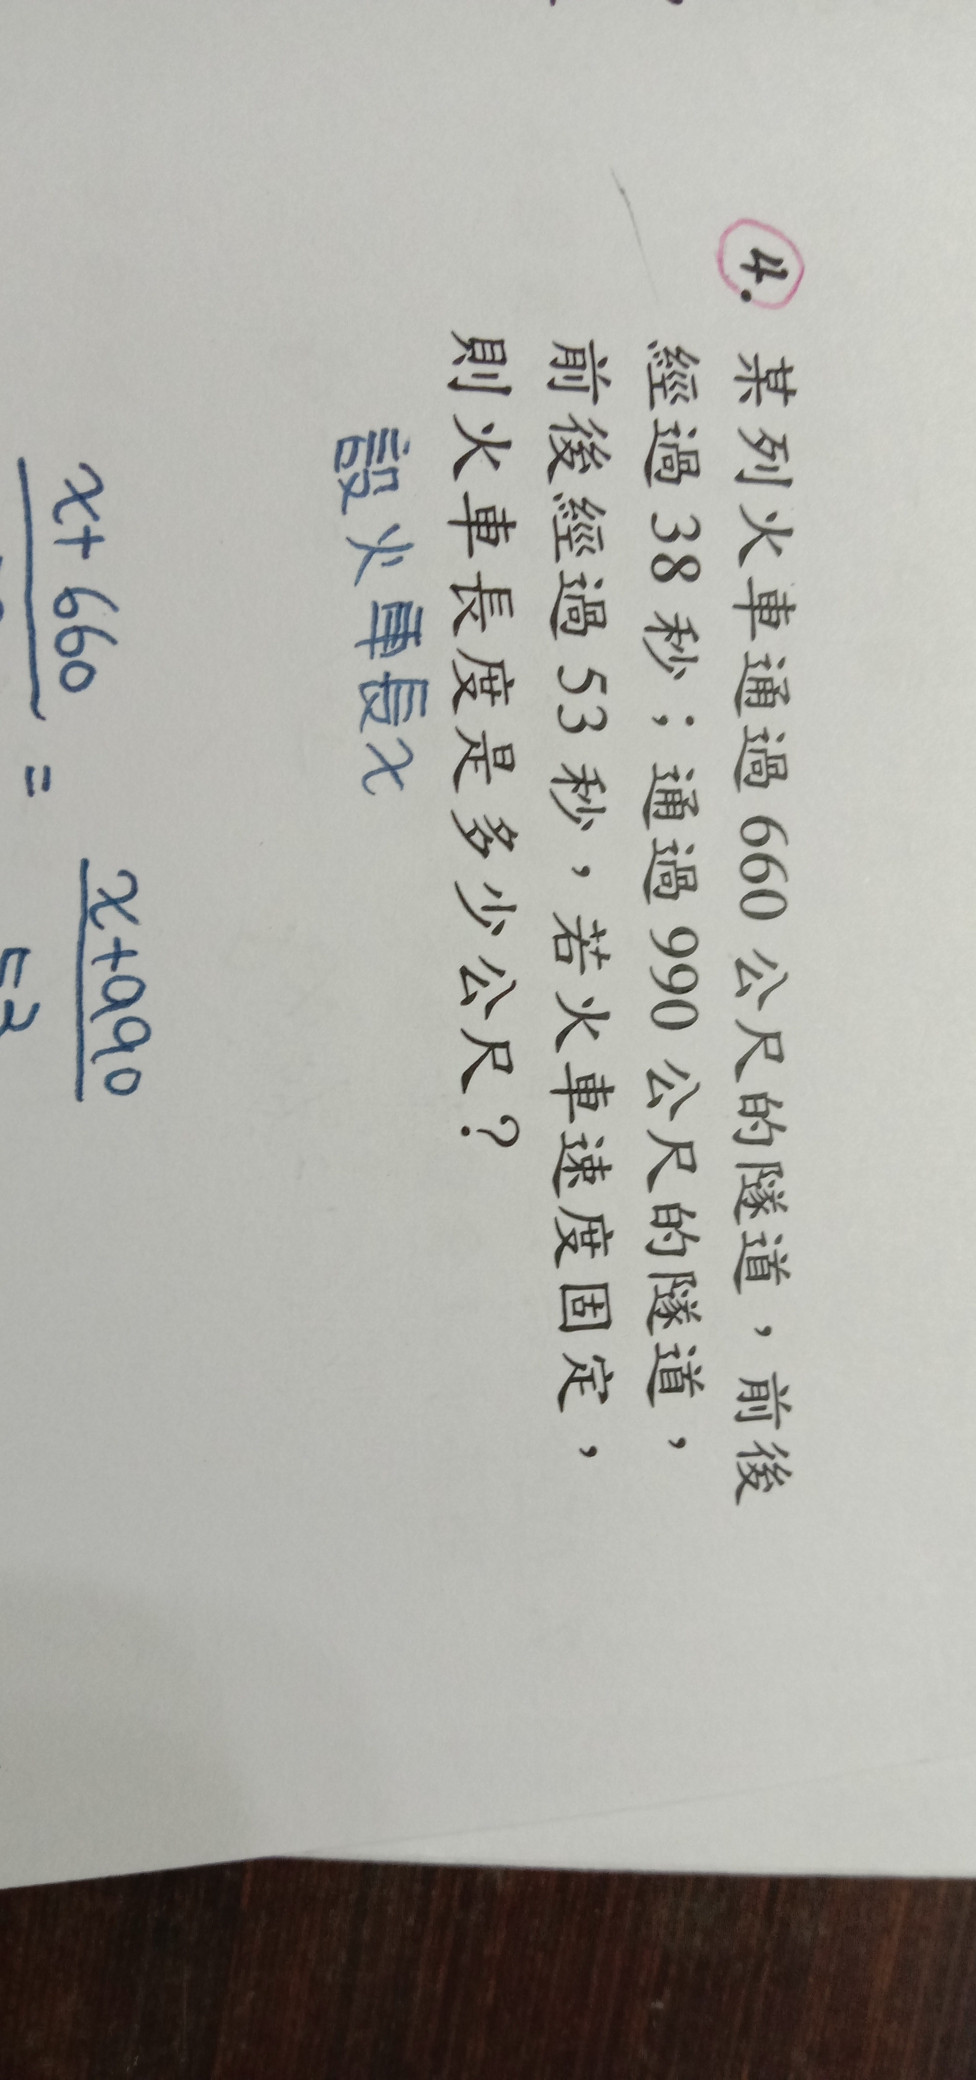 4. 某列火車通過 660 公尺的隧道，前後
經過 38 秒；通過 990 公尺的隧道，
前後經過 53 秒，若火車速度固定，
則火車長度是多少公尺？
設火車長x
x+660 = x+990
53